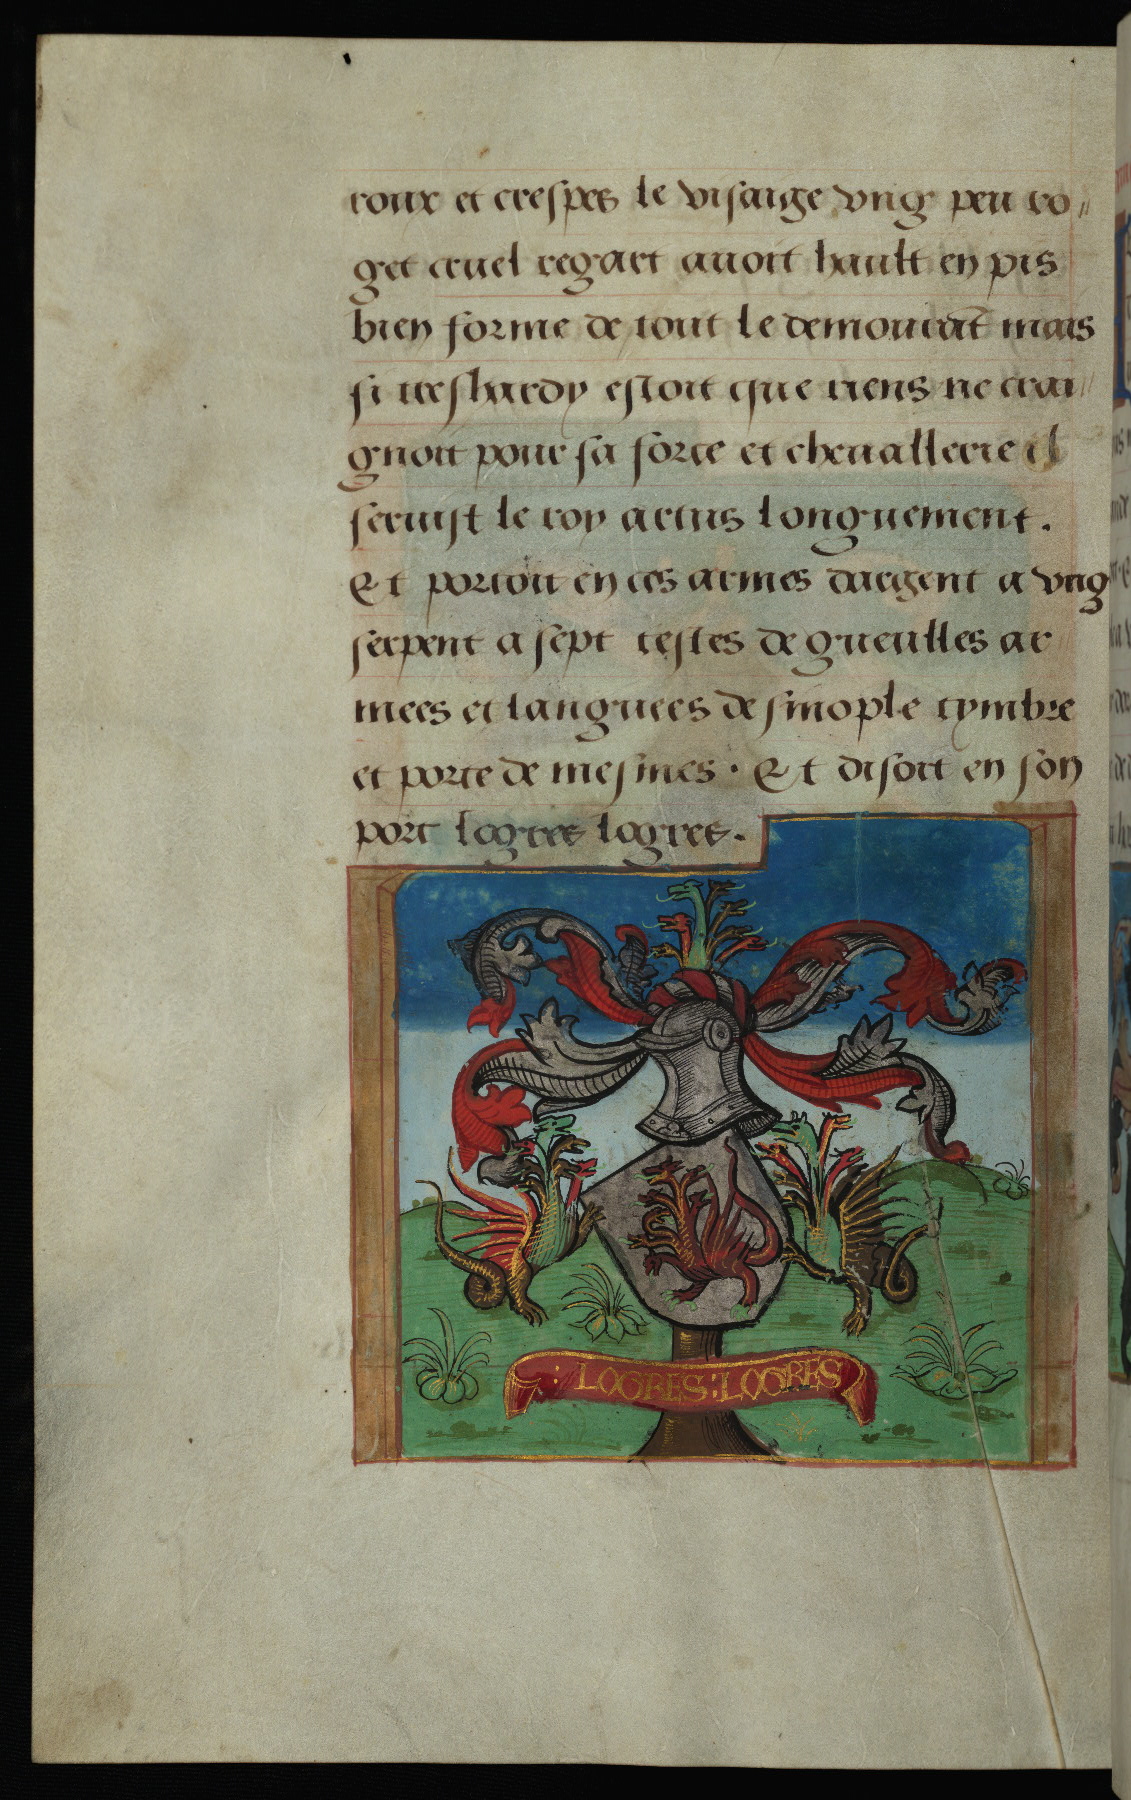 roux et crespes le visaige vng peu ro//
get cruel regart auoit hault en pis
bien forme de tout le demourāt mais
si treshardy estoit que riens ne crai//
gnoit pour sa force et cheuallerie il
seruist le roy artus longuement.
Et portoit en ces armes dargent a vng
serpent a sept testes de gueulles ar
mees et languees de sinople tymbre
et porte de mesmes · Et disoit en son
port logres logres.
: LOGRES : LOGRES